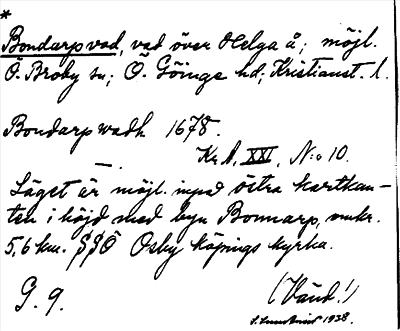 *
Bondarp vad, vad över Helga å; möjl.
Ö. Broby sn; Ö. Göinge hd; Kristianst. l.
Bondarp wadh 1678.
— Kr. A. XXI, N:o 10.
Läget är möjl. inpå östra kartkan-
ten i höjd med byn Bonnarp, omkr.
5,6 km. SSÖ Osby köpings kyrka.
G. 9.
(Vänd!)
1938.